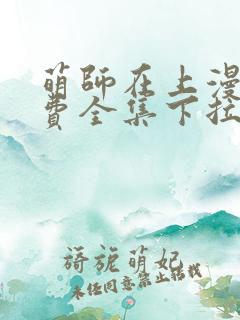 萌師在上漫
費全集下拉
旖旎萌妃
未经同意禁止转载